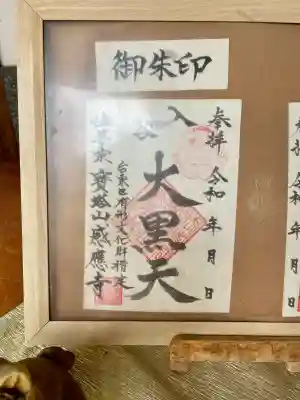 御朱印
奉拝 令和 年 月 日
入谷
大黒天
台東区有形文化財指定
寶塔山感應寺